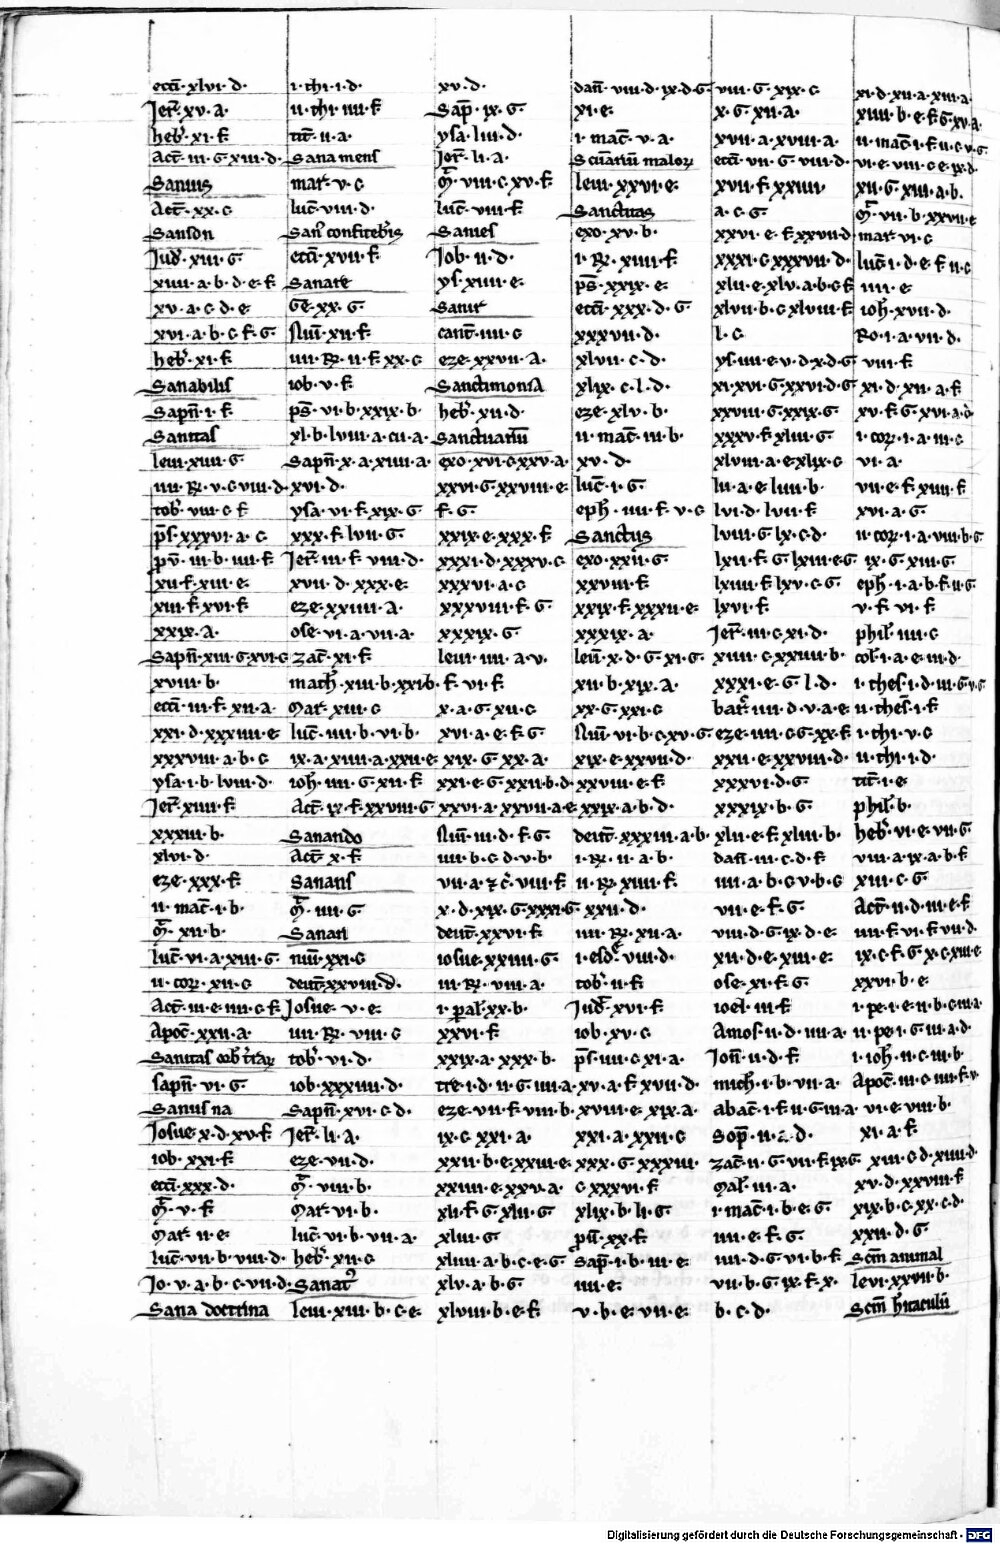 ecci · xlvi · d ·
Jer · xv · a ·
heb · xi · f
Act · iii · G · xiii · d ·
Sanius
Act · xx · c
Sanson
Jud · xiii · G
xiiii · a · b · d · e · f
xv · a · c · d · e
xvi · a · b · c · f · G
heb · xi · f
Sanabilis
Sapn · i · f
Sanitas
leui · xiiii · G
iiii · R · v · c · viii · d
tob · viii · c · f
ps · xxxvi · a · c
prv · iii · b · iiii · f
xii · f · xiii · e
xiii · f · xvi · f
xxix · a ·
Sapn · xiii · G · xvi · c
xviii · b ·
ecci · iii · f · xii · a
xxi · d · xxxiiii · e
xxxviii · a · b · c
ysa · i · b · lviii · d ·
Jer · xiiii · f
xxxiii · b ·
xlvi · d ·
eze · xxx · f
ii · mac · i · b
xii · b ·
luc · vi · a · xiii · G
ii · cor · xii · c
Act · iii · e · iiii · c · f
Apoc · xxii · a ·
Sanitas
sapn · vi · G
Sanus na
Josue · x · d · xv · f
iob · xxi · f
ecci · xxx · d ·
v · f
Mar · ii · e
luc · vii · b · viii · d ·
Jo · v · a · b · c · vii · d ·
Sana doctrina
i · thi · i · d ·
ii · thi · iiii · f
tit · ii · a ·
Sana mens
mat · v · c
luc · viii · d ·
ecci · xvii · f
Sanare
Ge · xx · G
Num · xii · f
iiii · R · ii · f · xx · c
iob · v · f
ps · vi · b · xxix · b
xl · b · lviii · a · cii · a ·
Sapn · x · a · xiiii · a ·
xvi · d ·
ysa · vi · f · xix · G
xxx · f · lvii · G
Jer · iii · f · viii · d ·
xvii · d · xxx · e
eze · xxxiiii · a ·
ose · vi · a · vii · a ·
zac · xi · f
math · xiii · b · xxi · b ·
Mar · xiii · c
luc · iiii · b · vi · b ·
ix · a · xiiii · a · xxii · e
ioh · iiii · G · xii · f
Act · ix · f · xxviii · G
Sanando
Act · x · f
Sanans
iiii · G
Sanari
num · xxi · c
deut · xxviii · d ·
Josue · v · e
iiii · R · viii · c
tob · vi · d ·
iob · xxxiiii · d ·
Sapn · xvi · c · d ·
Jer · li · a ·
eze · vii · d ·
viii · b ·
Mar · vi · b ·
luc · vi · b · vii · a ·
heb · xii · c
leui · xiii · b · c · e
xv · d ·
Sap · ix · G
ysa · liii · d ·
Jer · li · a ·
viii · c · xv · f
luc · viii · f
Sanies
Job · ii · d ·
ys · xiiii · e
Sanit
cant · iiii · c
eze · xxvii · a ·
Sanctimonia
heb · xii · d ·
Sanctuariu
exo · xvi · c · xxv · a
xxvi · G · xxviii · e
f · G
xxix · e · xxx · f
xxxi · d · xxxv · c
xxxvi · a · c
xxxviii · f · G
xxxix · G
leui · iiii · a · v ·
f · vi · f
x · a · G · xii · c
xvi · a · e · f · G
xix · G · xx · a ·
xxi · e · G · xxii · b · d
xxvi · a · xxvii · a · e
Num · iii · d · f · G
iiii · b · c · d · v · b ·
x · d · xix · G · xxxi · G
deut · xxvi · f
iosue · xxiiii · G
iii · R · viii · a
i · pal · xx · b ·
xxvi · f
xxix · a · xxx · b ·
tre · i · d · ii · G · iiii · a
eze · vii · f · viii · b
ix · c · xxi · a ·
xxii · b · e · xxiii · e
xxiiii · e · xxv · a
xli · f · G · xlii · G
xliii · G
xliiii · a · b · c · e · G
xlv · a · b · G
xlviii · b · e · f
dan · viii · d · ix · d · G
xi · e ·
i · mac · v · a ·
leui · xxvi · e
Sanctitas
exo · xv · b ·
i · R · xiiii · f
ps · xxix · e
ecci · xxx · d · G
xxxvii · d ·
xlvii · c · d ·
xlix · c · l · d ·
eze · xlv · b ·
ii · mac · iii · b ·
xv · d ·
luc · i · G
eph · iiii · f · v · c
Sanctus
exo · xxii · G
xxviii · f
xxix · f · xxxii · e
xxxix · a ·
leui · x · d · G · xi · G
xii · b · xix · a ·
xx · G · xxi · c
Num · vi · b · c · xv · G
xix · e · xxvii · d ·
xxviii · e · f
xxix · a · b · d ·
deut · xxxiii · a · b
i · R · ii · a · b ·
ii · R · xiiii · f
xxii · d ·
iiii · R · xii · a ·
i · esd · viii · d ·
tob · ii · f
Jud · xvi · f
iob · xv · c
ps · iii · c · xi · a ·
xv · a · f · xvii · d ·
xviii · e · xix · a ·
xxi · a · xxii · c
xxx · G · xxxiii ·
c · xxxvi · f
xlix · b · li · G
pu · xx · f
Sap · i · b · iii · e
iiii · e
v · b · e · vii · e
viii · G · xix · c
x · G · xii · a ·
xvii · a · xviii · a ·
ecci · vii · G · viii · d ·
xvii · f · xxiiii ·
a · c · G
xxvi · e · f · xxvii · d
xxxi · c · xxxvii · d
xlii · e · xlv · a · b · c · f
xlvii · b · c · xlviii · f
l · c
ys · iiii · e · v · d · x · d · G
xi · xvi · G · xxvi · d · G
xxviii · G · xxix · G
xxxv · f · xliii · G
xlviii · a · e · xlix · c
lii · a · e · liii · b ·
lvi · d · lvii · f
lviii · G · lx · c · d
lxii · f · G · lxiii · e · G
lxiiii · f · lxv · c · G
lxvi · f
Jer · iii · c · xi · d ·
xiiii · c · xxiiii · b ·
xxxi · e · G · l · d ·
bar · iiii · d · v · a · e
eze · iiii · c · G · xx · f
xxii · e · xxviii · d
xxxvi · d · G
xxxix · b · G
xlii · e · f · xliii · b ·
dan · iii · c · d · f
iiii · a · b · c · v · b · c
vii · e · f · G ·
viii · d · G · ix · d · e
xii · d · e · xiii · e
ose · xi · f · G
ioel · iii · f
Amos · ii · d · iiii · a
Jon · ii · d · f
mich · i · b · vii · a ·
abac · i · f · ii · G · iii · a
zac · ii · G · vii · f · ix · G
Mal · iii · a ·
i · mac · i · b · e · G
iii · e · f · G
iiii · d · G · vi · b · f
vii · b · G · ix · f · x ·
b · c · d ·
xi · d · xii · a · xiii · a
xiiii · b · e · f · G · xv · a
ii · mac · i · f · ii · c · v · G
vi · e · viii · c · e · ix · d
xii · G · xiii · a · b ·
vii · b · xxvii · e
mar · vi · c
luc · i · d · e · f · ii · c
iiii · e
ioh · xvii · d ·
Ro · i · a · vii · d ·
viii · f
xi · d · xii · a · f
xv · f · G · xvi · a · c
i · cor · i · a · iii · c
vi · a ·
vii · e · f · xiiii · f
xvi · a · G
ii · cor · i · a · viii · b · G
ix · G · xiii · G
eph · i · a · b · f · ii · G
v · f · vi · f
phil · iiii · c
col · i · a · e · iii · d
i · thes · i · d · iii · G · v · G
ii · thes · i · f
i · thi · v · c
ii · thi · i · d ·
tit · i · e
phil · b ·
heb · vi · e · vii · G
viii · a · ix · a · b · f
xiii · c · G
Act · ii · d · iii · e · f
iiii · f · vi · f · vii · d
ix · c · f · G · x · c · xiii · e
xxvi · b · e
i · pe · i · e · ii · b · c · iii · a
ii · pe · i · G · iii · a · d
i · ioh · ii · c · iii · b
Apoc · iii · c · iiii · f · v
vi · e · viii · b ·
xi · a · f
xiii · c · d · xiiii · d
xv · d · xxviii · f
xix · b · c · xx · c · d
xxii · d · G
Scm animal
levi · xxvii · b
Digitalisierung gefördert durch die Deutsche Forschungsgemeinschaft - DFG